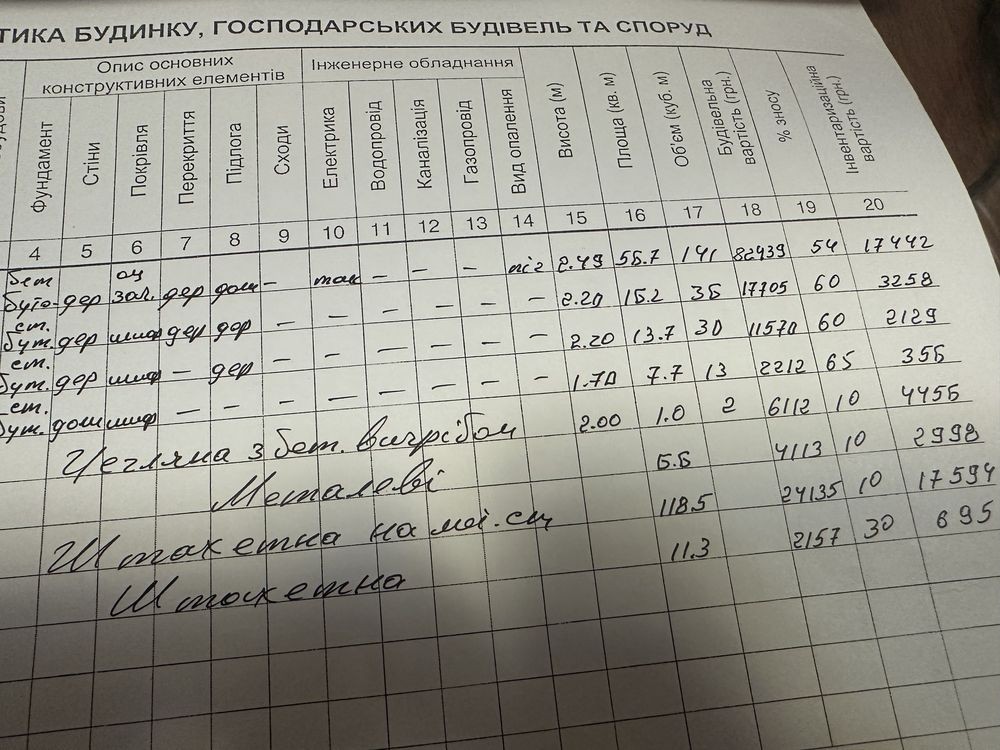 ТИКА БУДИНКУ, ГОСПОДАРСЬКИХ БУДІВЕЛЬ ТА СПОРУД
Опис основних конструктивних елементів Інженерне обладнання
Фундамент Стіни Покрівля Перекриття Підлога Сходи Електрика Водопровід Каналізація Газопровід Вид опалення Висота (м) Площа (кв. м) Об'єм (куб. м) Будівельна вартість (грн.) % зносу Інвентаризаційна вартість (грн.)
4 5 6 7 8 9 10 11 12 13 14 15 16 17 18 19 20
бет оц
буто- дер зал. дер дощ – – – – піг 2.49 55.7 141 54 17442
ст.
бут. дер шиф дер дер – – – – – – 2.20 15.2 35 17705 60 3258
ст.
бут. дер шиф – дер – – – – – – 2.20 13.7 30 11570 60 2129
ст.
бут. дощ шиф – – – – – – – – 1.70 7.7 13 2212 65 355
Цегляна з бет. вигрібом 2.00 1.0 2 6112 10 4455
Металеві 5.5 4113 10 2998
Штакетна на 118.5 24135 10 17594
Штакетна 11.3 2157 30 695